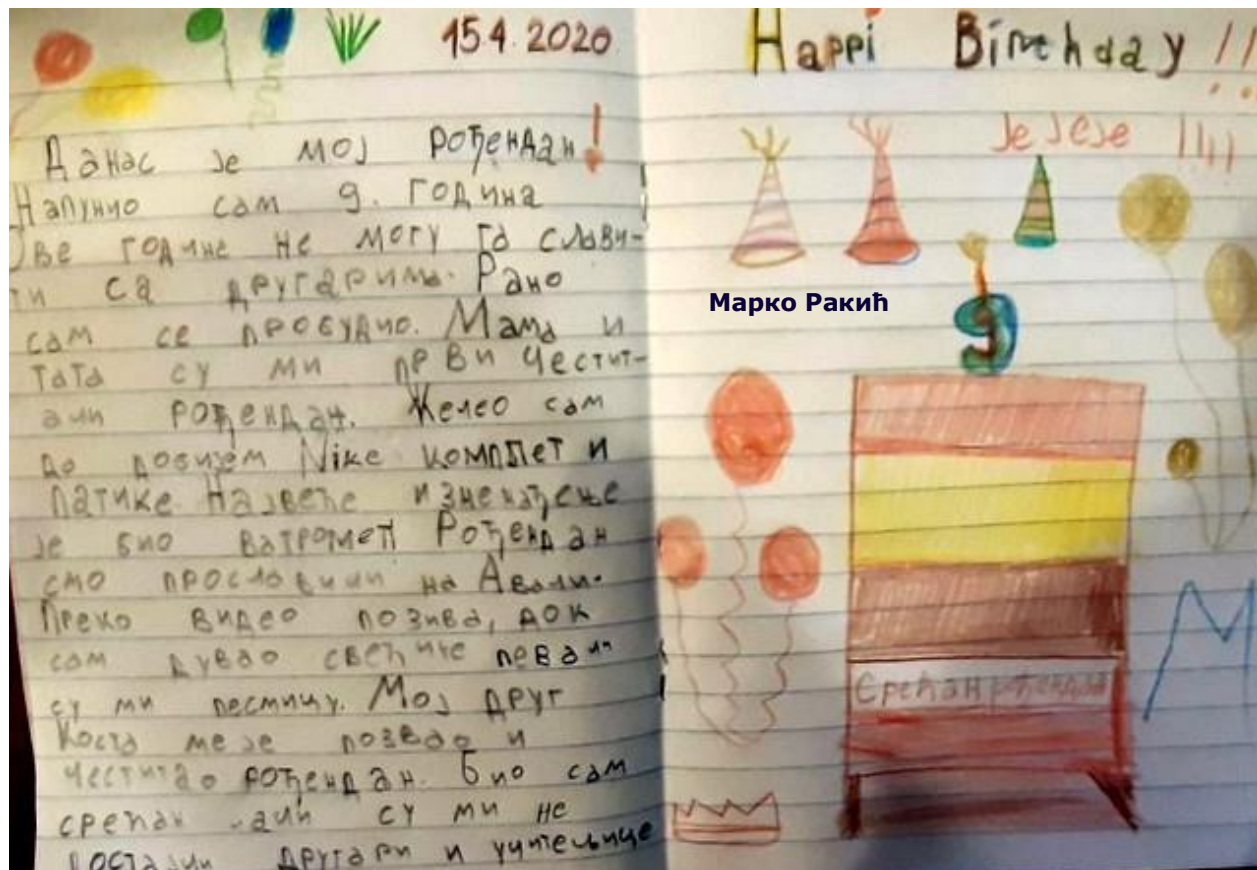 15.4.2020
Данас је мој рођендан!
Напунио сам 9. година
Ове године не могу га слави-
ти са другарима. Рано
сам се пробудио. Мама и
тата су ми први честит-
али рођендан. Желео сам
да добијем Nike комплет и
патике. Највеће изненађење
је био ватромет. Рођендан
смо прославили на Авали.
Преко видео позива, док
сам дувао свећице певали
су ми песмицу. Мој друг
Коста ме је позвао и
честитао рођендан. Био сам
срећан али су ми не
достајали другари и учитељице
Happi Birthday!!
Је Је Је !!!!
Марко Ракић
9
Срећан рођендан
М